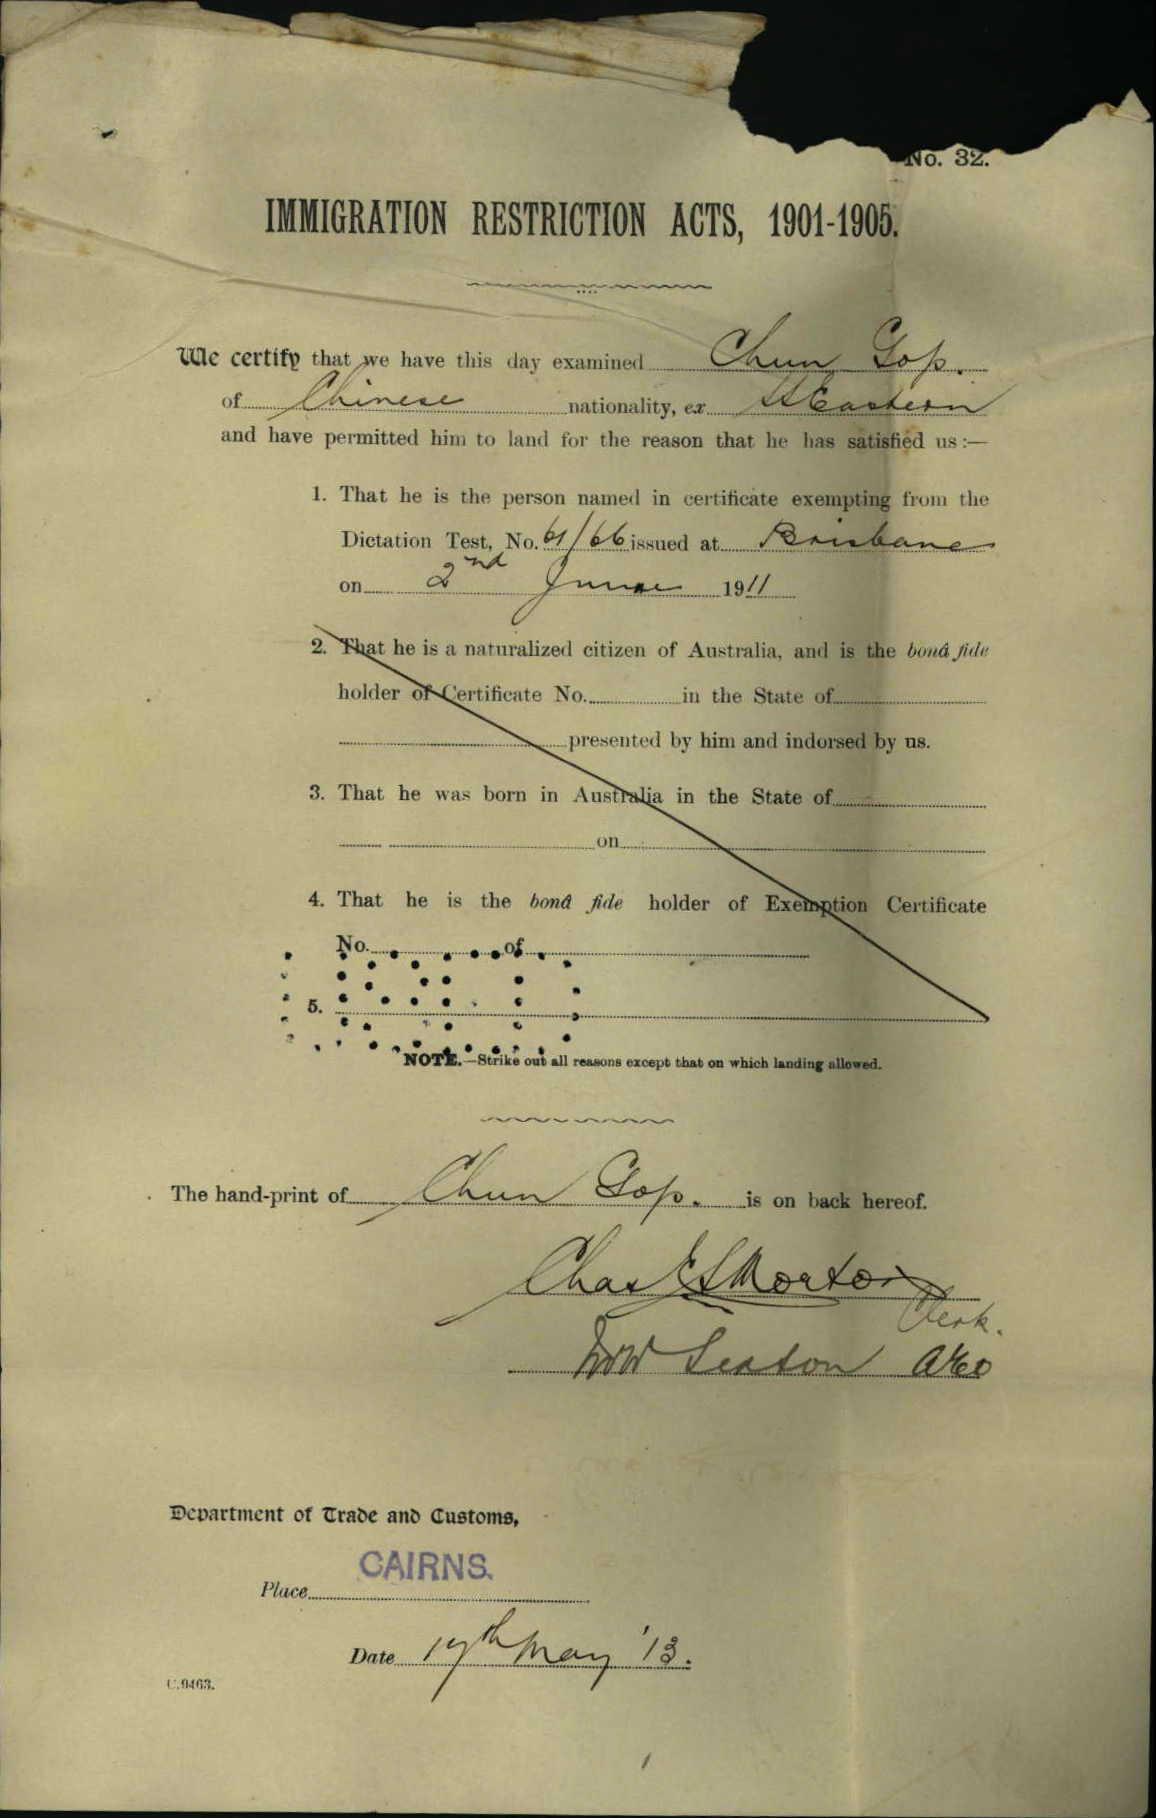 No. 32.
IMMIGRATION RESTRICTION ACTS, 1901-1905.
We certify that we have this day examined Chun Gop.
of Chinese nationality, ex SS Eastern
and have permitted him to land for the reason that he has satisfied us :—
1. That he is the person named in certificate exempting from the
Dictation Test, No. 61/66 issued at Brisbane
on 2nd June 1911
2. That he is a naturalized citizen of Australia, and is the bonâ fide
holder of Certificate No. in the State of
presented by him and indorsed by us.
3. That he was born in Australia in the State of
on
4. That he is the bonâ fide holder of Exemption Certificate
No. of
5.
NOTE.—Strike out all reasons except that on which landing allowed.
The hand-print of Chun Gop. is on back hereof.
Chas E S Morton
Clerk.
Seaton
Department of Trade and Customs,
CAIRNS.
Place
Date 17th May '13.
C.9463.